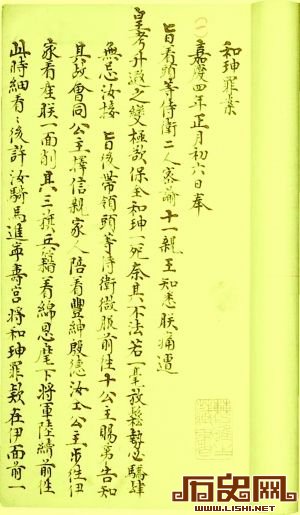 和珅罪案
㊀嘉慶四年正月初六日奉
旨看頭等侍衛二人密諭十一親王知悉朕痛遭
皇考升遐之變極欲保全和珅一死奈其不法若一毫放鬆勢必驕肆
無忌汝接 旨後帶領頭等侍衛微服前往十公主賜第告知
其故會同公主擇信親家人陪看豐紳殷德汝公主步往伊
家看座朕一面削其三旗兵籍着綿恩麾下將軍陸續前往
此時細看之後許汝騎馬進寧壽宮將和珅罪款在伊面前一
历史网
WWW.LISHI.NET